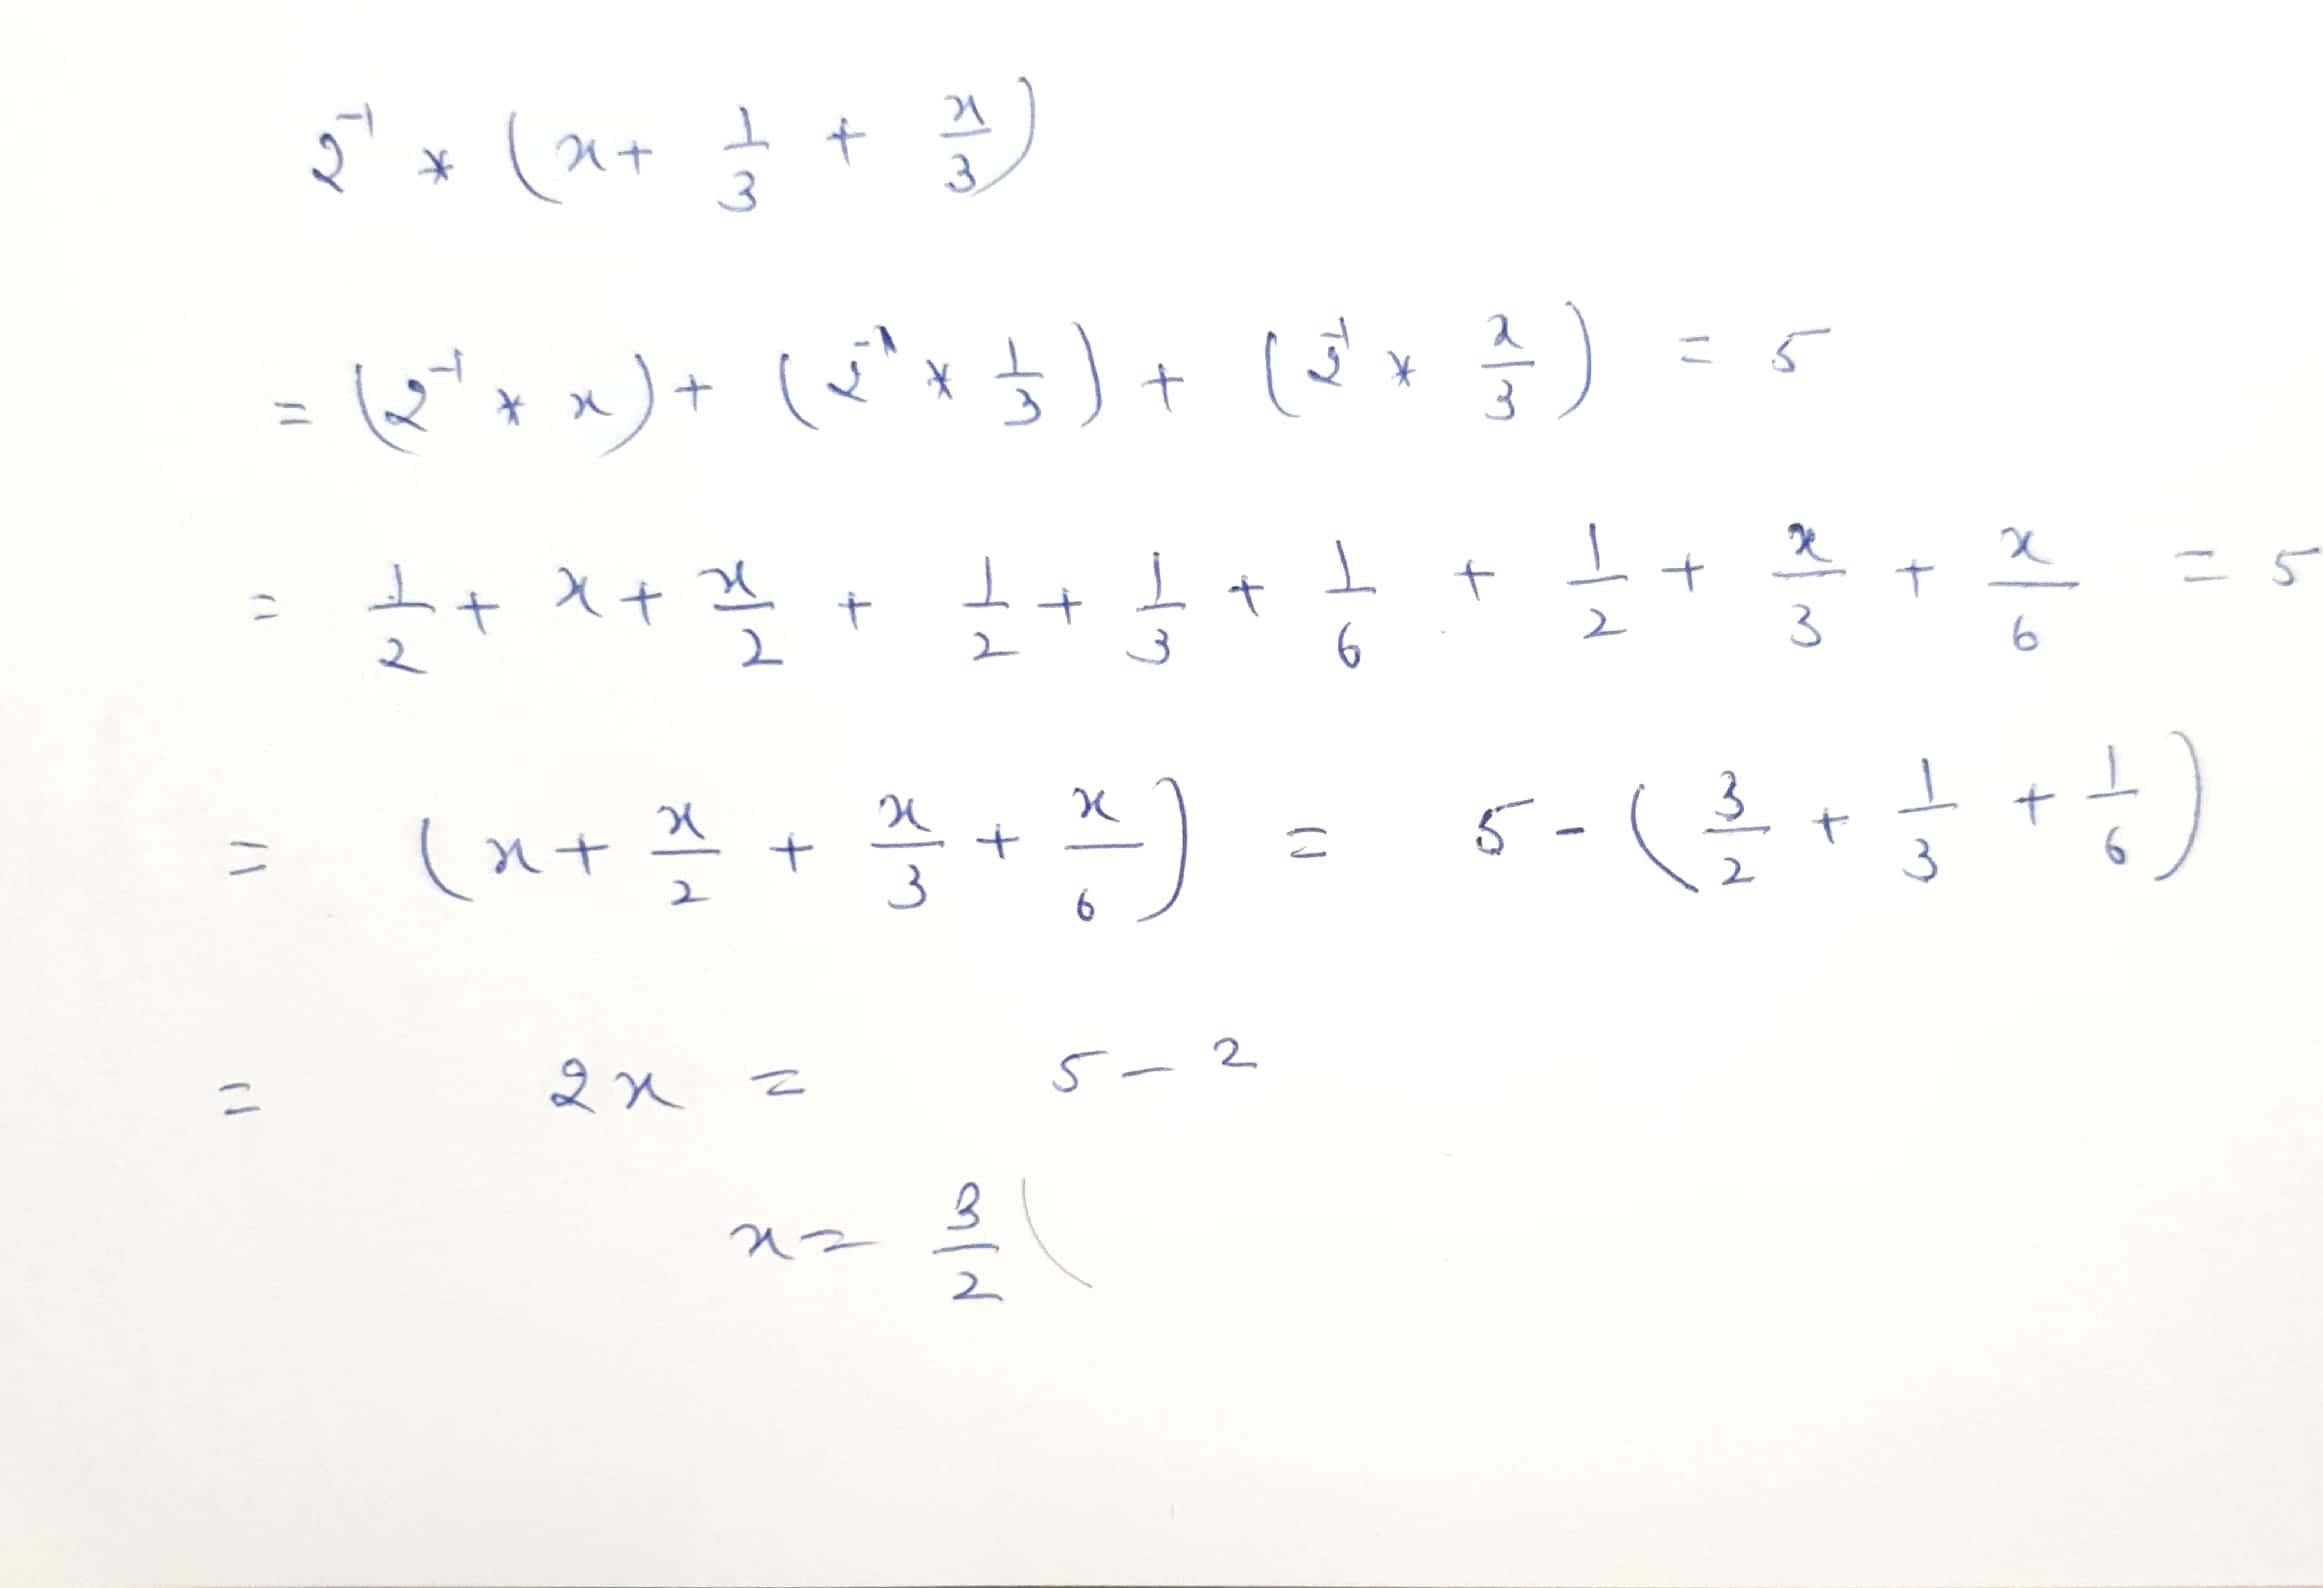 2⁻¹ * (x + 1/3 + x/3)
= (2⁻¹ * x) + (2⁻¹ * 1/3) + (2⁻¹ * x/3) = 5
= 1/2 + x + x/2 + 1/2 + 1/3 + 1/6 + 1/2 + x/3 + x/6 = 5
= (x + x/2 + x/3 + x/6) = 5 - (3/2 + 1/3 + 1/6)
= 2x = 5 - 2
x = 3/2 (